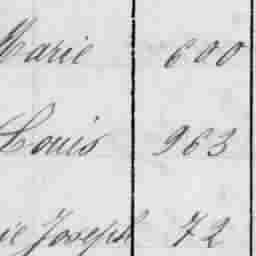 Marie 600
Louis 963
ie Joseph 72